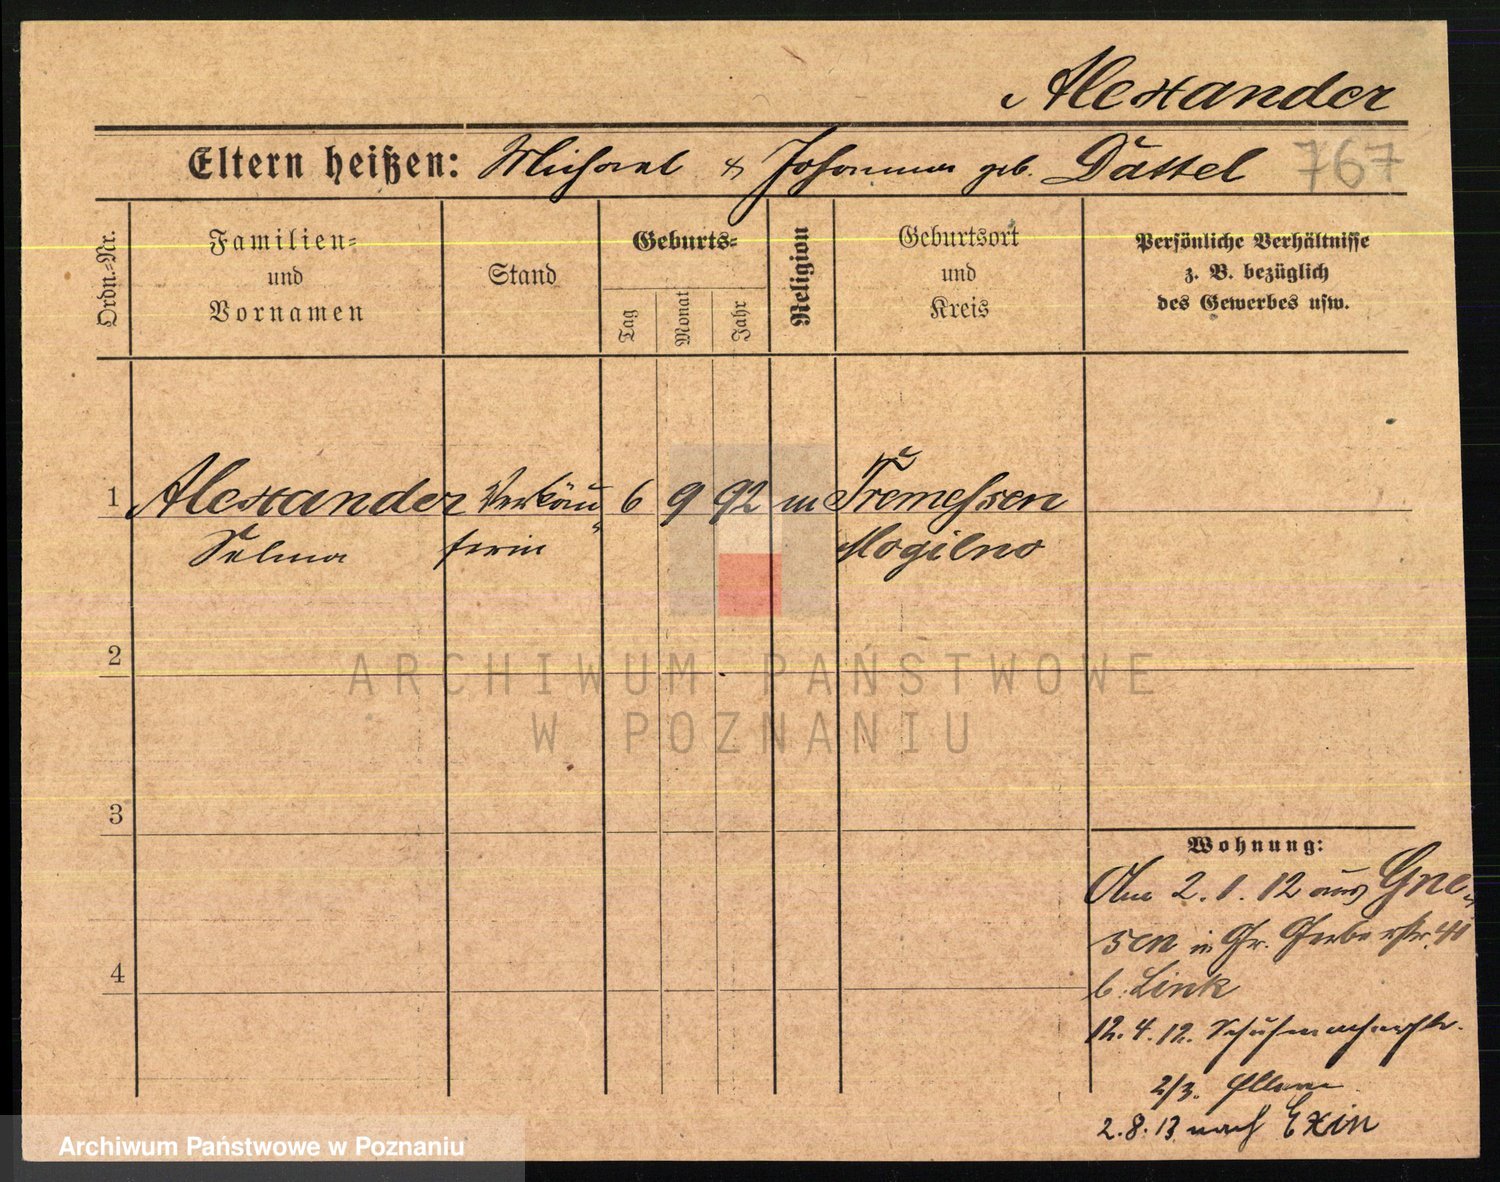 Alexander
Eltern heißen: Michael & Johanna geb. Dättel 767
Ordn.-Nr.
Familien-
und
Vornamen
Stand
Geburts-
Tag
Monat
Jahr
Religion
Geburtsort
und
Kreis
Persönliche Verhältnisse
z. B. bezüglich
des Gewerbes usw.
1 Alexander Verkäu- 6 9 92 m Tremessen
Selma ferin Mogilno
2
ARCHIWUM PAŃSTWOWE
W POZNANIU
3
Wohnung:
Am 2.1.12 aus Gne-
sen in Gr. Gerberstr. 41
b. Link
4
12.4.12. Schuhmacherstr.
2/3. Eltern
2.8.13 nach Exin
Archiwum Państwowe w Poznaniu